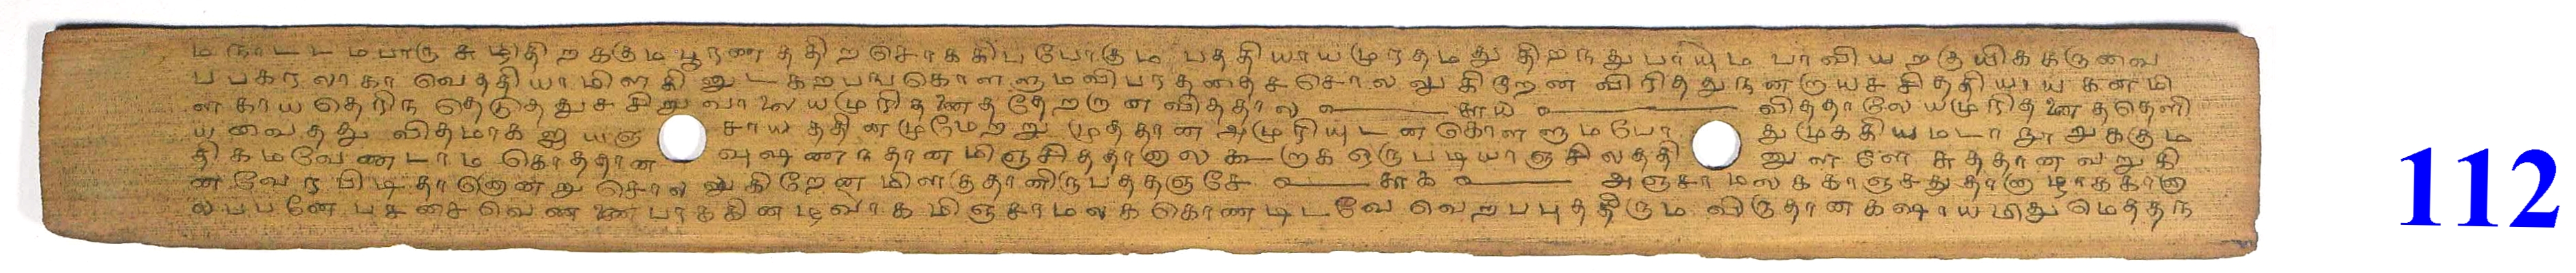 ம நாடடமபாரு சுழிதிறககும பூரணததிறசொககிபபோகும பததியாயமுரதமது திறநதுபாயும பாவியறகுயிககருவை
பபகரலாகா வெததியாமிளகினுடகறபஙகொளளுமவிபரதனைச சொலலுகிறேன விரிததுநனருயசசிததியாயகனமி
ளகாயதெரிந தெடுததுசசிறுவாலையமுரிதனைத தேறருன விததால ௳ ௬௰ ௳ விததாலேயமுரிதனைததெளி
யவைதது விதமாகஐயஞ சாயததினமுமேறறு முததான அமுரியுடனகொளளுமபோ துமுககியமடா நூறுககும
திகமவேணடாம கொததான ஷஷணநதானமிஞசிததானால கூறுக ஒருபடியாஞசிலததி னுளளே சுததானவறுகி
னவேரபிடிதானெனறு சொலலுகிறேன மிளகுதானிருபததஞசே ௳ ௬௧ ௳ அஞசாமலககாஞசதுதானுழாககான
லபபணே பசுசைவெணணைபாககினடிவாக மிஞசாமலககொணடிடவே வெறபபுததீரும விருதானகஷாயமிது மெததந